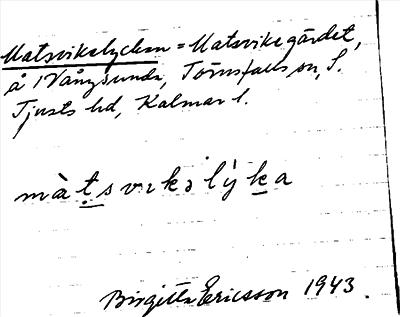 Matsvikelyckan = Matsvikegärdet,
å Vångsunda, Törnsfalls sn, S.
Tjusts hd, Kalmar l.
màt̤svikəlẏ́k̠a
Birgitta Ericsson 1943.